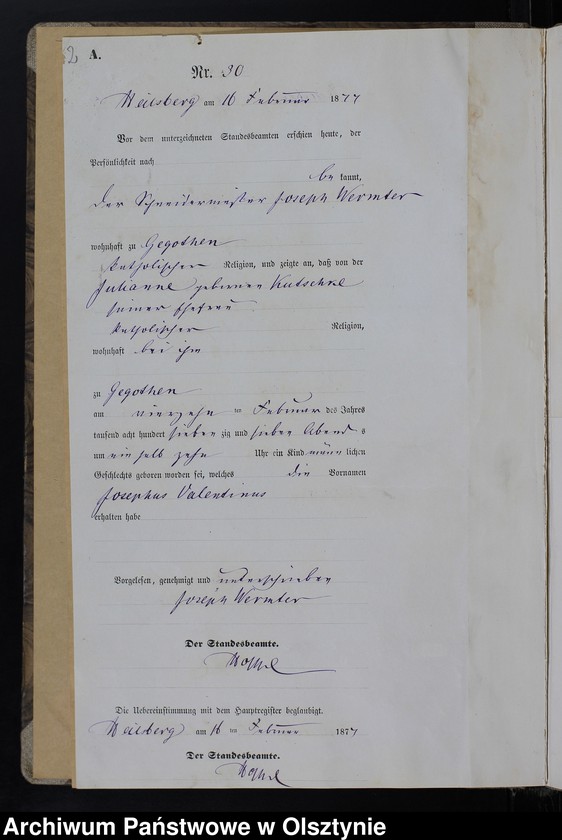 2
A.
Nr. 30
Heilsberg am 16 Februar 1877
Vor dem unterzeichneten Standesbeamten erschien heute, der
Persönlichkeit nach
be kannt,
der Schneidermeister Joseph Wermter
wohnhaft zu Gegothen
katholischer Religion, und zeigte an, daß von der
Julianne geborenen Kutschke
seiner Ehefrau
katholischer Religion,
wohnhaft bei ihm
zu Gegothen
am vierzehn ten Februar des Jahres
tausend acht hundert sieben zig und sieben Abend s
um ein halb zehn Uhr ein Kind männ lichen
Geschlechts geboren worden sei, welches die Vornamen
Josephus Valentinus
erhalten habe
Vorgelesen, genehmigt und unterschrieben
Joseph Wermter
Der Standesbeamte.
Die Uebereinstimmung mit dem Hauptregister beglaubigt.
Heilsberg am 16 ten Februar 1877
Der Standesbeamte.
Archiwum Państwowe w Olsztynie